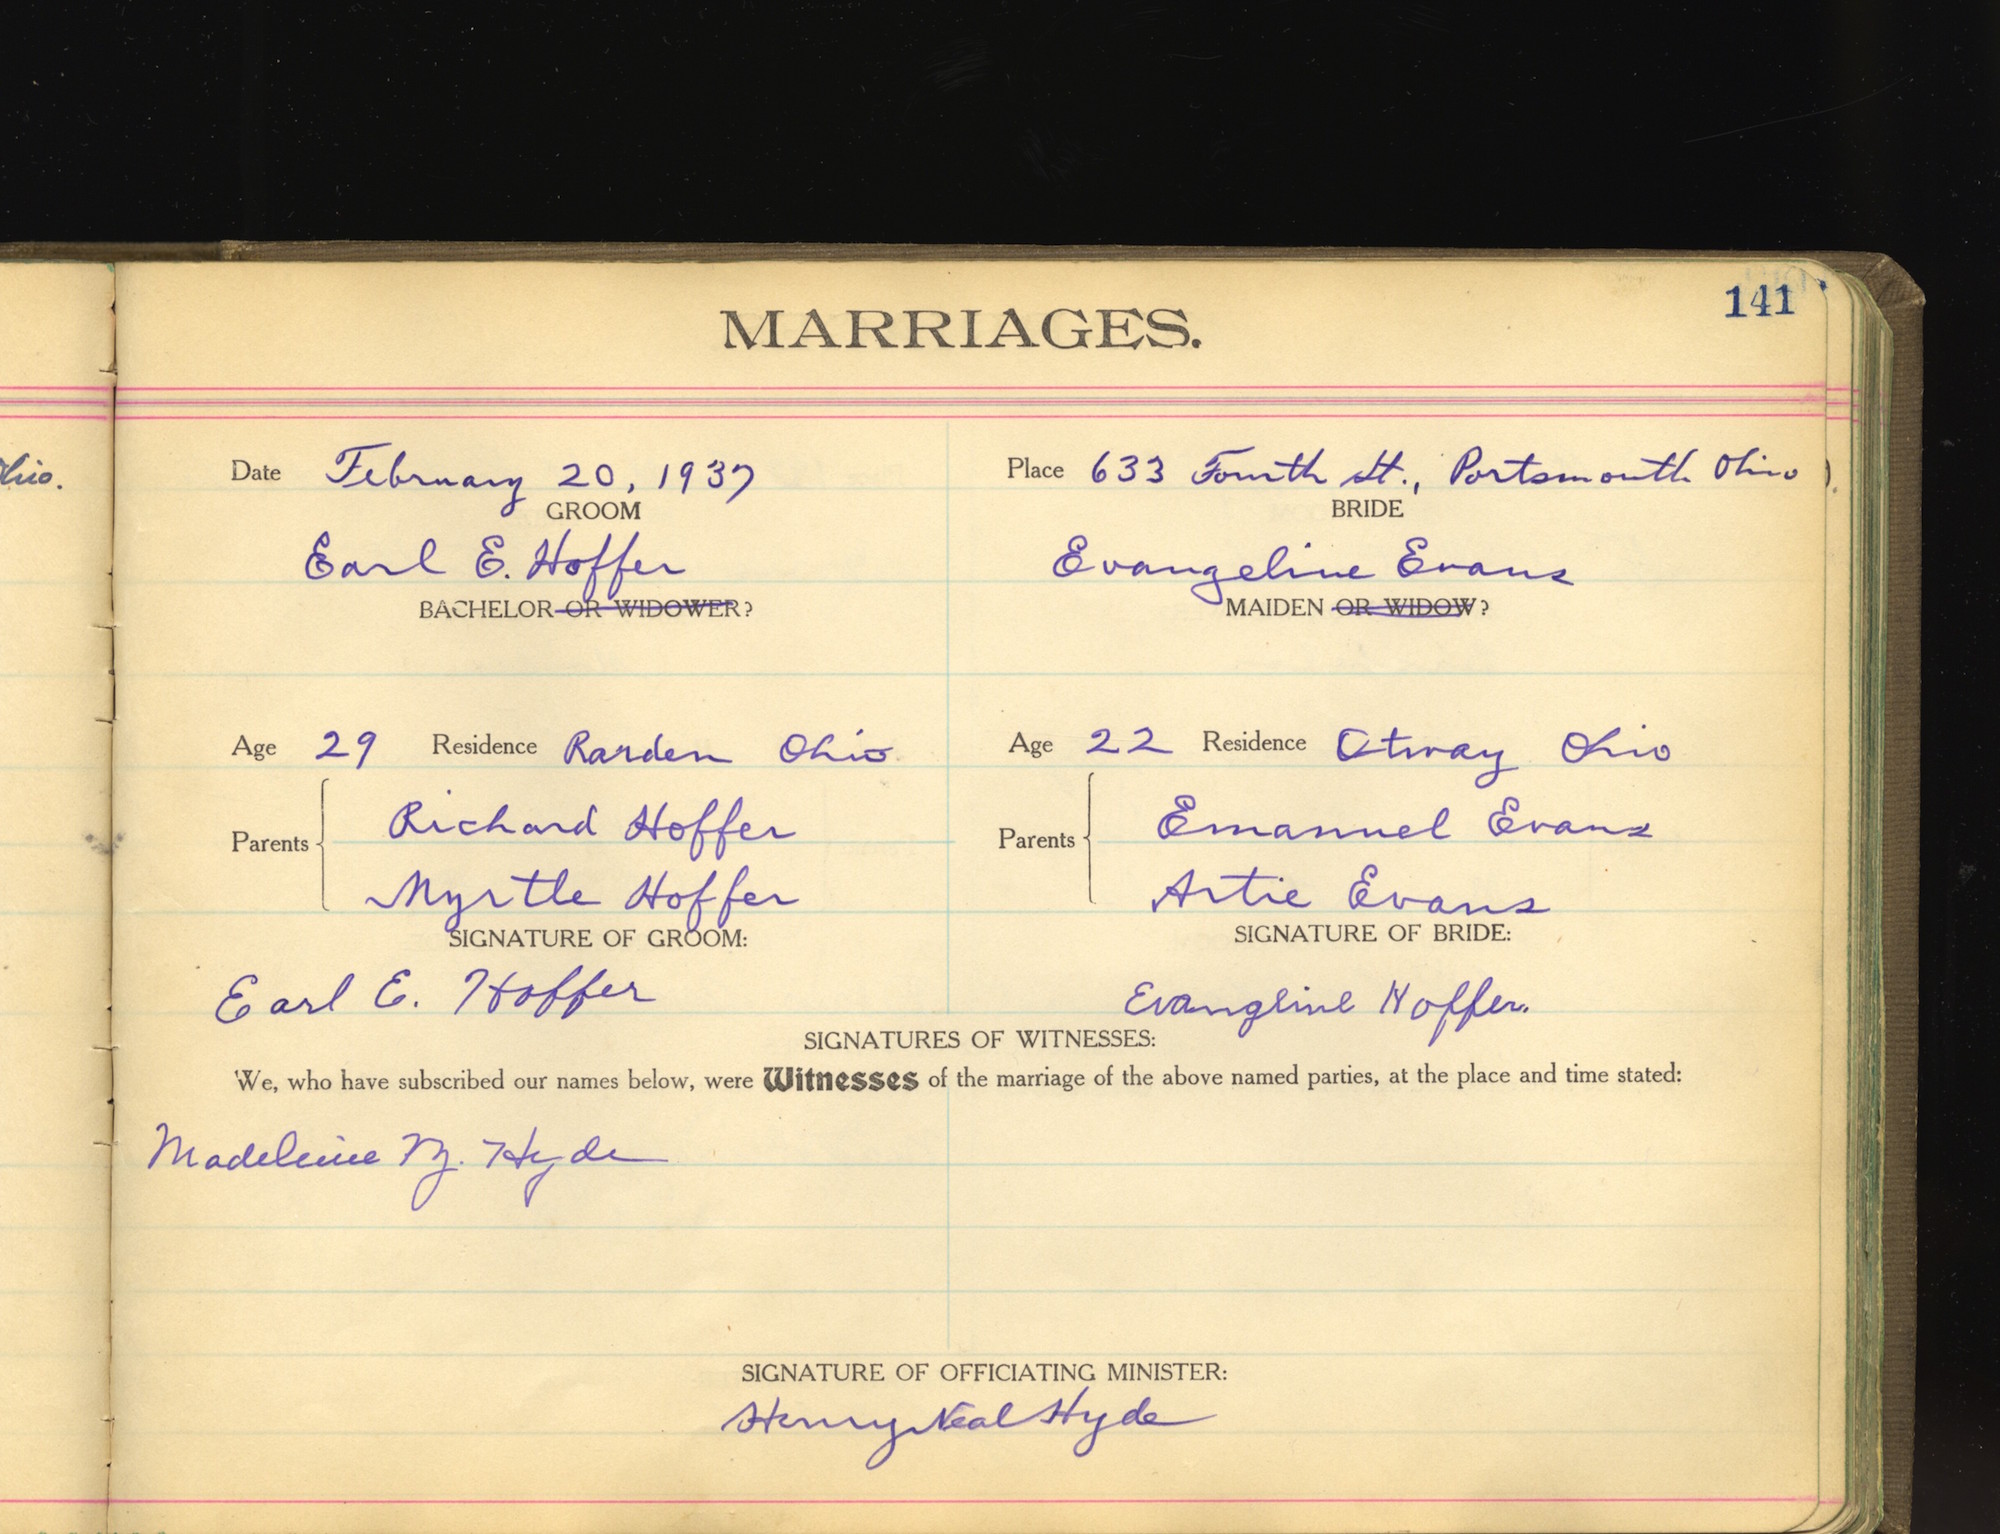 141
MARRIAGES.
hio.
Date February 20, 1937 Place 633 Fourth St., Portsmouth Ohio
GROOM BRIDE
Earl E. Hoffer Evangeline Evans
BACHELOR OR WIDOWER? MAIDEN OR WIDOW?
Age 29 Residence Rarden Ohio Age 22 Residence Otway Ohio
Parents Richard Hoffer Parents Emanuel Evans
Myrtle Hoffer Artie Evans
SIGNATURE OF GROOM: SIGNATURE OF BRIDE:
Earl E. Hoffer Evangline Hoffer.
SIGNATURES OF WITNESSES:
We, who have subscribed our names below, were Witnesses of the marriage of the above named parties, at the place and time stated:
Madeleine Hyde
SIGNATURE OF OFFICIATING MINISTER:
Henry Neal Hyde